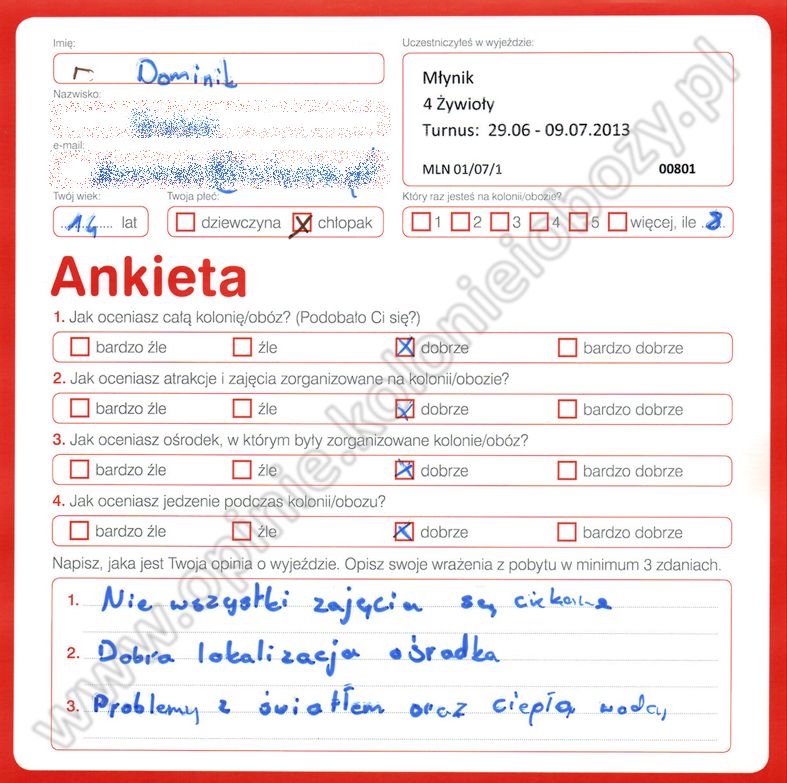 Imię:
Dominik
Uczestniczyłeś w wyjeździe:
Młynik
4 Żywioły
Turnus: 29.06 - 09.07.2013
MLN 01/07/1 00801
Nazwisko:
e-mail:
Twój wiek:
14 lat
Twoja płeć:
dziewczyna chłopak
Który raz jesteś na kolonii/obozie?
1 2 3 4 5 więcej, ile 8
Ankieta
1. Jak oceniasz całą kolonię/obóz? (Podobało Ci się?)
bardzo źle źle dobrze bardzo dobrze
2. Jak oceniasz atrakcje i zajęcia zorganizowane na kolonii/obozie?
bardzo źle źle dobrze bardzo dobrze
3. Jak oceniasz ośrodek, w którym były zorganizowane kolonie/obóz?
bardzo źle źle dobrze bardzo dobrze
4. Jak oceniasz jedzenie podczas kolonii/obozu?
bardzo źle źle dobrze bardzo dobrze
Napisz, jaka jest Twoja opinia o wyjeździe. Opisz swoje wrażenia z pobytu w minimum 3 zdaniach.
1. Nie wszystki zajęcia są ciekawe
2. Dobra lokalizacja ośrodka
3. Problemy z światłem oraz ciepłą wodą
www.opinie.kolonieiobozy.pl